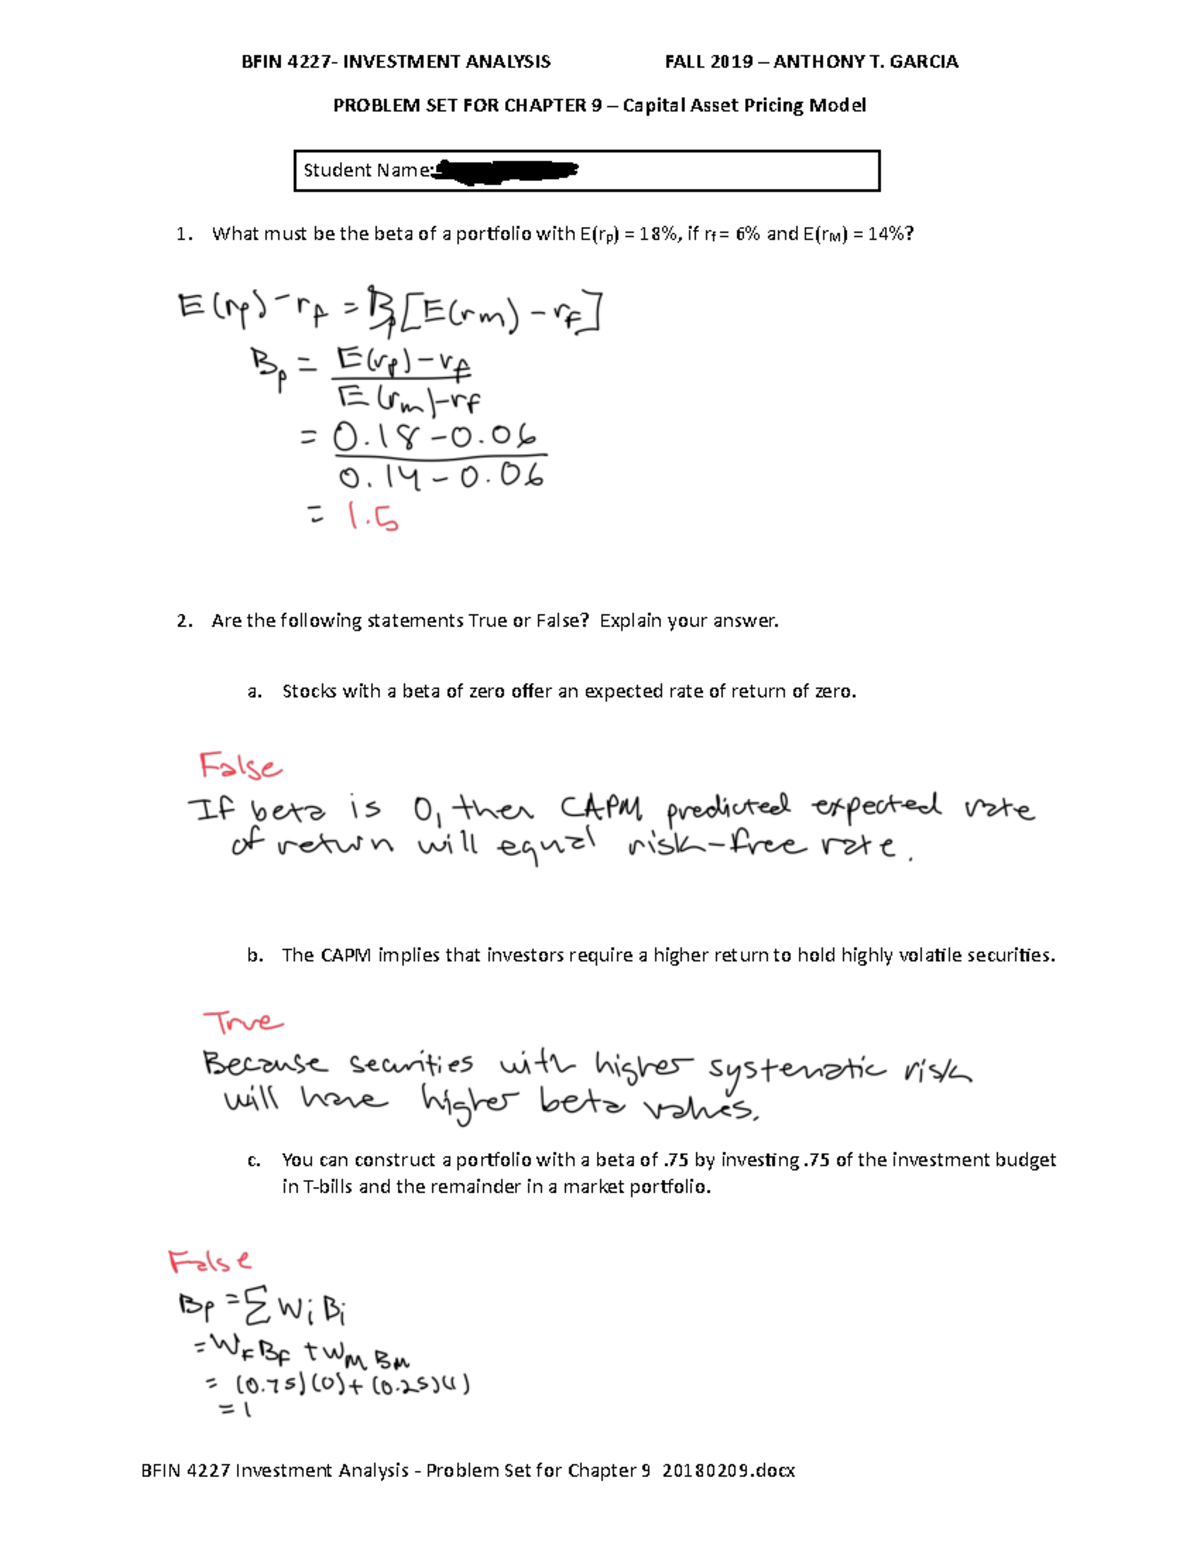 BFIN 4227- INVESTMENT ANALYSIS FALL 2019 – ANTHONY T. GARCIA
PROBLEM SET FOR CHAPTER 9 – Capital Asset Pricing Model
Student Name:
1. What must be the beta of a portfolio with E(rp) = 18%, if rf = 6% and E(rM) = 14%?
E(rp) - rf = Bp[E(rm) - rf]
Bp = E(rp) - rf
E(rm) - rf
= 0.18 - 0.06
0.14 - 0.06
= 1.5
2. Are the following statements True or False? Explain your answer.
a. Stocks with a beta of zero offer an expected rate of return of zero.
False
If beta is 0, then CAPM predicted expected rate
of return will equal risk-free rate.
b. The CAPM implies that investors require a higher return to hold highly volatile securities.
True
Because securities with higher systematic risk
will have higher beta values.
c. You can construct a portfolio with a beta of .75 by investing .75 of the investment budget
in T-bills and the remainder in a market portfolio.
False
Bp = Σ Wi Bi
= WF BF + WM BM
= (0.75)(0) + (0.25)(1)
= 1
BFIN 4227 Investment Analysis - Problem Set for Chapter 9 20180209.docx